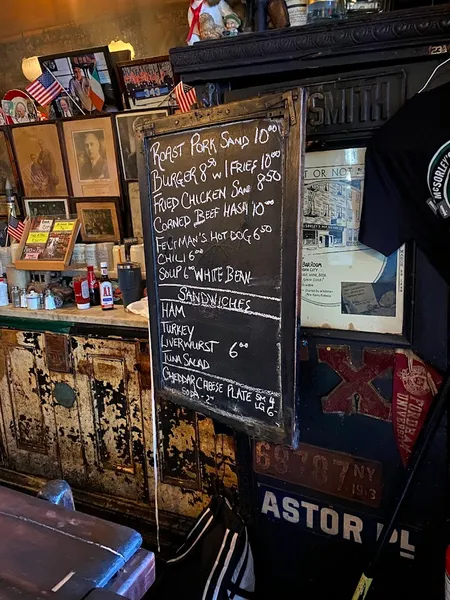 ROAST PORK SAND 10⁰⁰
BURGER 8⁵⁰ W/FRIES 10⁰⁰
FRIED CHICKEN SAN 8⁵⁰
CORNED BEEF HASH 10⁰⁰
FELTMAN'S HOT DOG 6⁵⁰
CHILI 6⁰⁰
SOUP 6⁰⁰ WHITE BEAN
SANDWICHES
HAM
TURKEY
LIVERWURST 6⁰⁰
TUNA SALAD
CHEDDAR CHEESE PLATE SM 4
LG 6
SODA - 2
SMITH
OR NOT
BAR ROOM
MCSORLEY'S
X
UNIVERSITY
NY
1913
ASTOR PL
A1